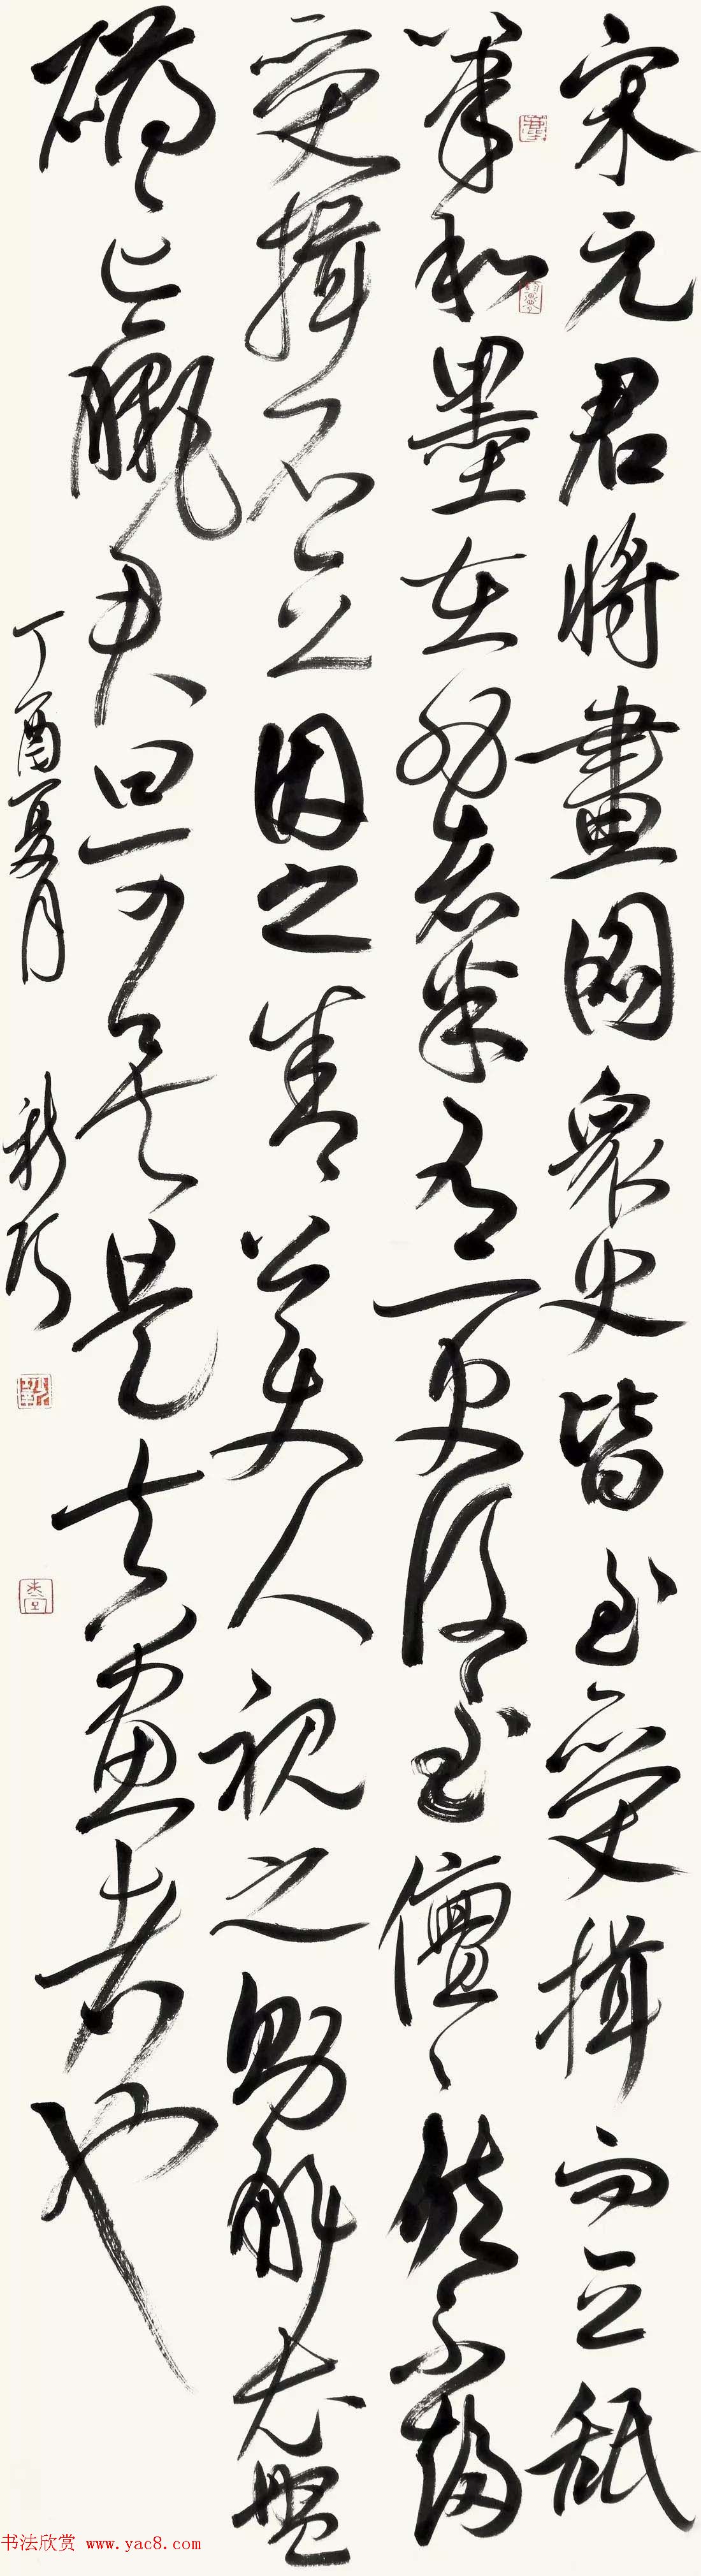 宋元君將畫圖眾史皆至受揖而立舐
筆和墨在外者半有一史後至儃〻然不趨
受揖不立因之舍公使人視之則解衣般
礴臝君曰可矣是真畫者也
丁酉夏月
书法欣赏 www.yac8.com